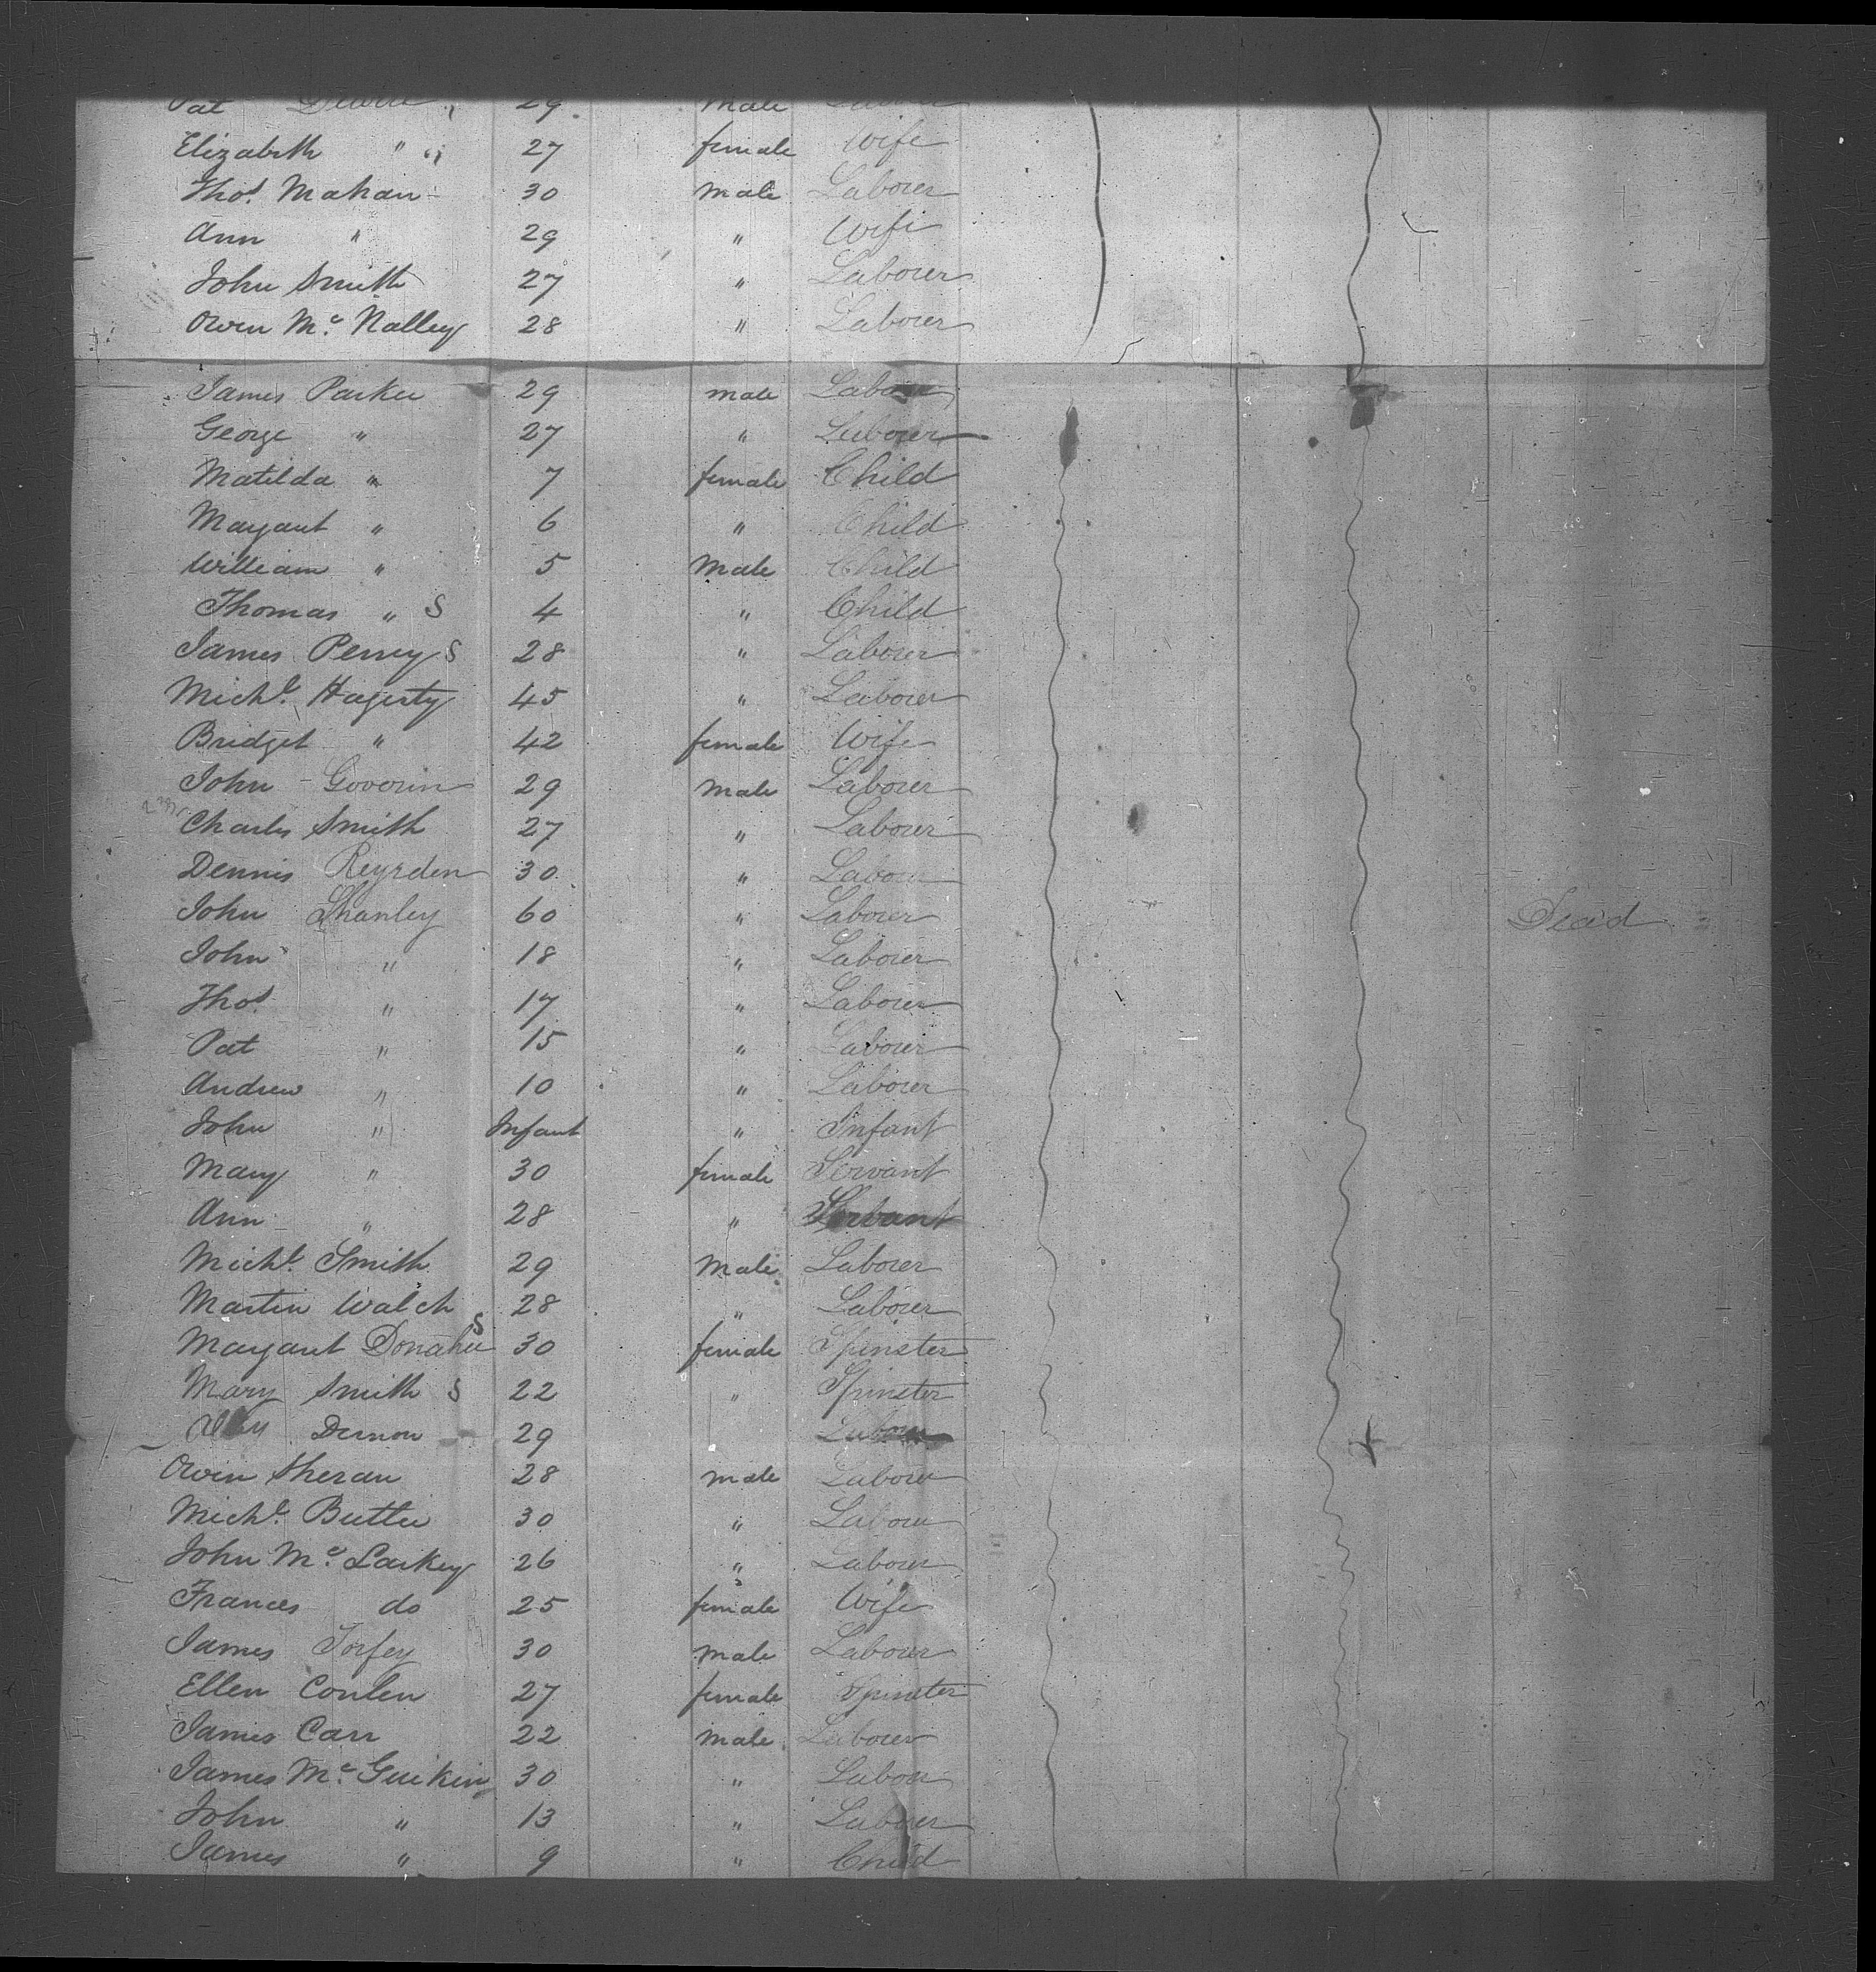 Pat 29 male
Elizabeth " " 27 female Wife
Thos. Mahan 30 male Laborer
Ann " 29 " Wife
John Smith 27 " Laborer
Owen Mc. Nalley 28 " Laborer
James Parker 29 male Laborer
George " 27 " Laborer
Matilda " 7 female Child
Margaret " 6 " Child
William " 5 male Child
Thomas " S 4 " Child
James Perrey S 28 " Laborer
Michl. Hagerty 45 " Laborer
Bridget " 42 female Wife
John Govorin 29 male Laborer
Charles Smith 27 " Laborer
Dennis Reyrden 30 " Laborer
John Shanley 60 " Laborer Dead
John " 18 " Laborer
Thos. " 17 " Laborer
Pat " 15 " Laborer
Andrew " 10 " Laborer
John " Infant " Infant
Mary " 30 female Servant
Ann " 28 " Servant
Michl. Smith 29 male Laborer
Martin Walch 28 " Laborer
Margaret Donahue S 30 female Spinster
Mary Smith S 22 " Spinster
Dernon 29 Laborer
Owen Sheran 28 male Laborer
Michl. Butler 30 " Laborer
John Mc. Larkey 26 " Laborer
Frances do 25 female Wife
James Torfey 30 male Laborer
Ellen Conlen 27 female Spinster
James Carr 22 male Laborer
James Mc. Guikin 30 " Laborer
John " 13 " Laborer
James " 9 " Child